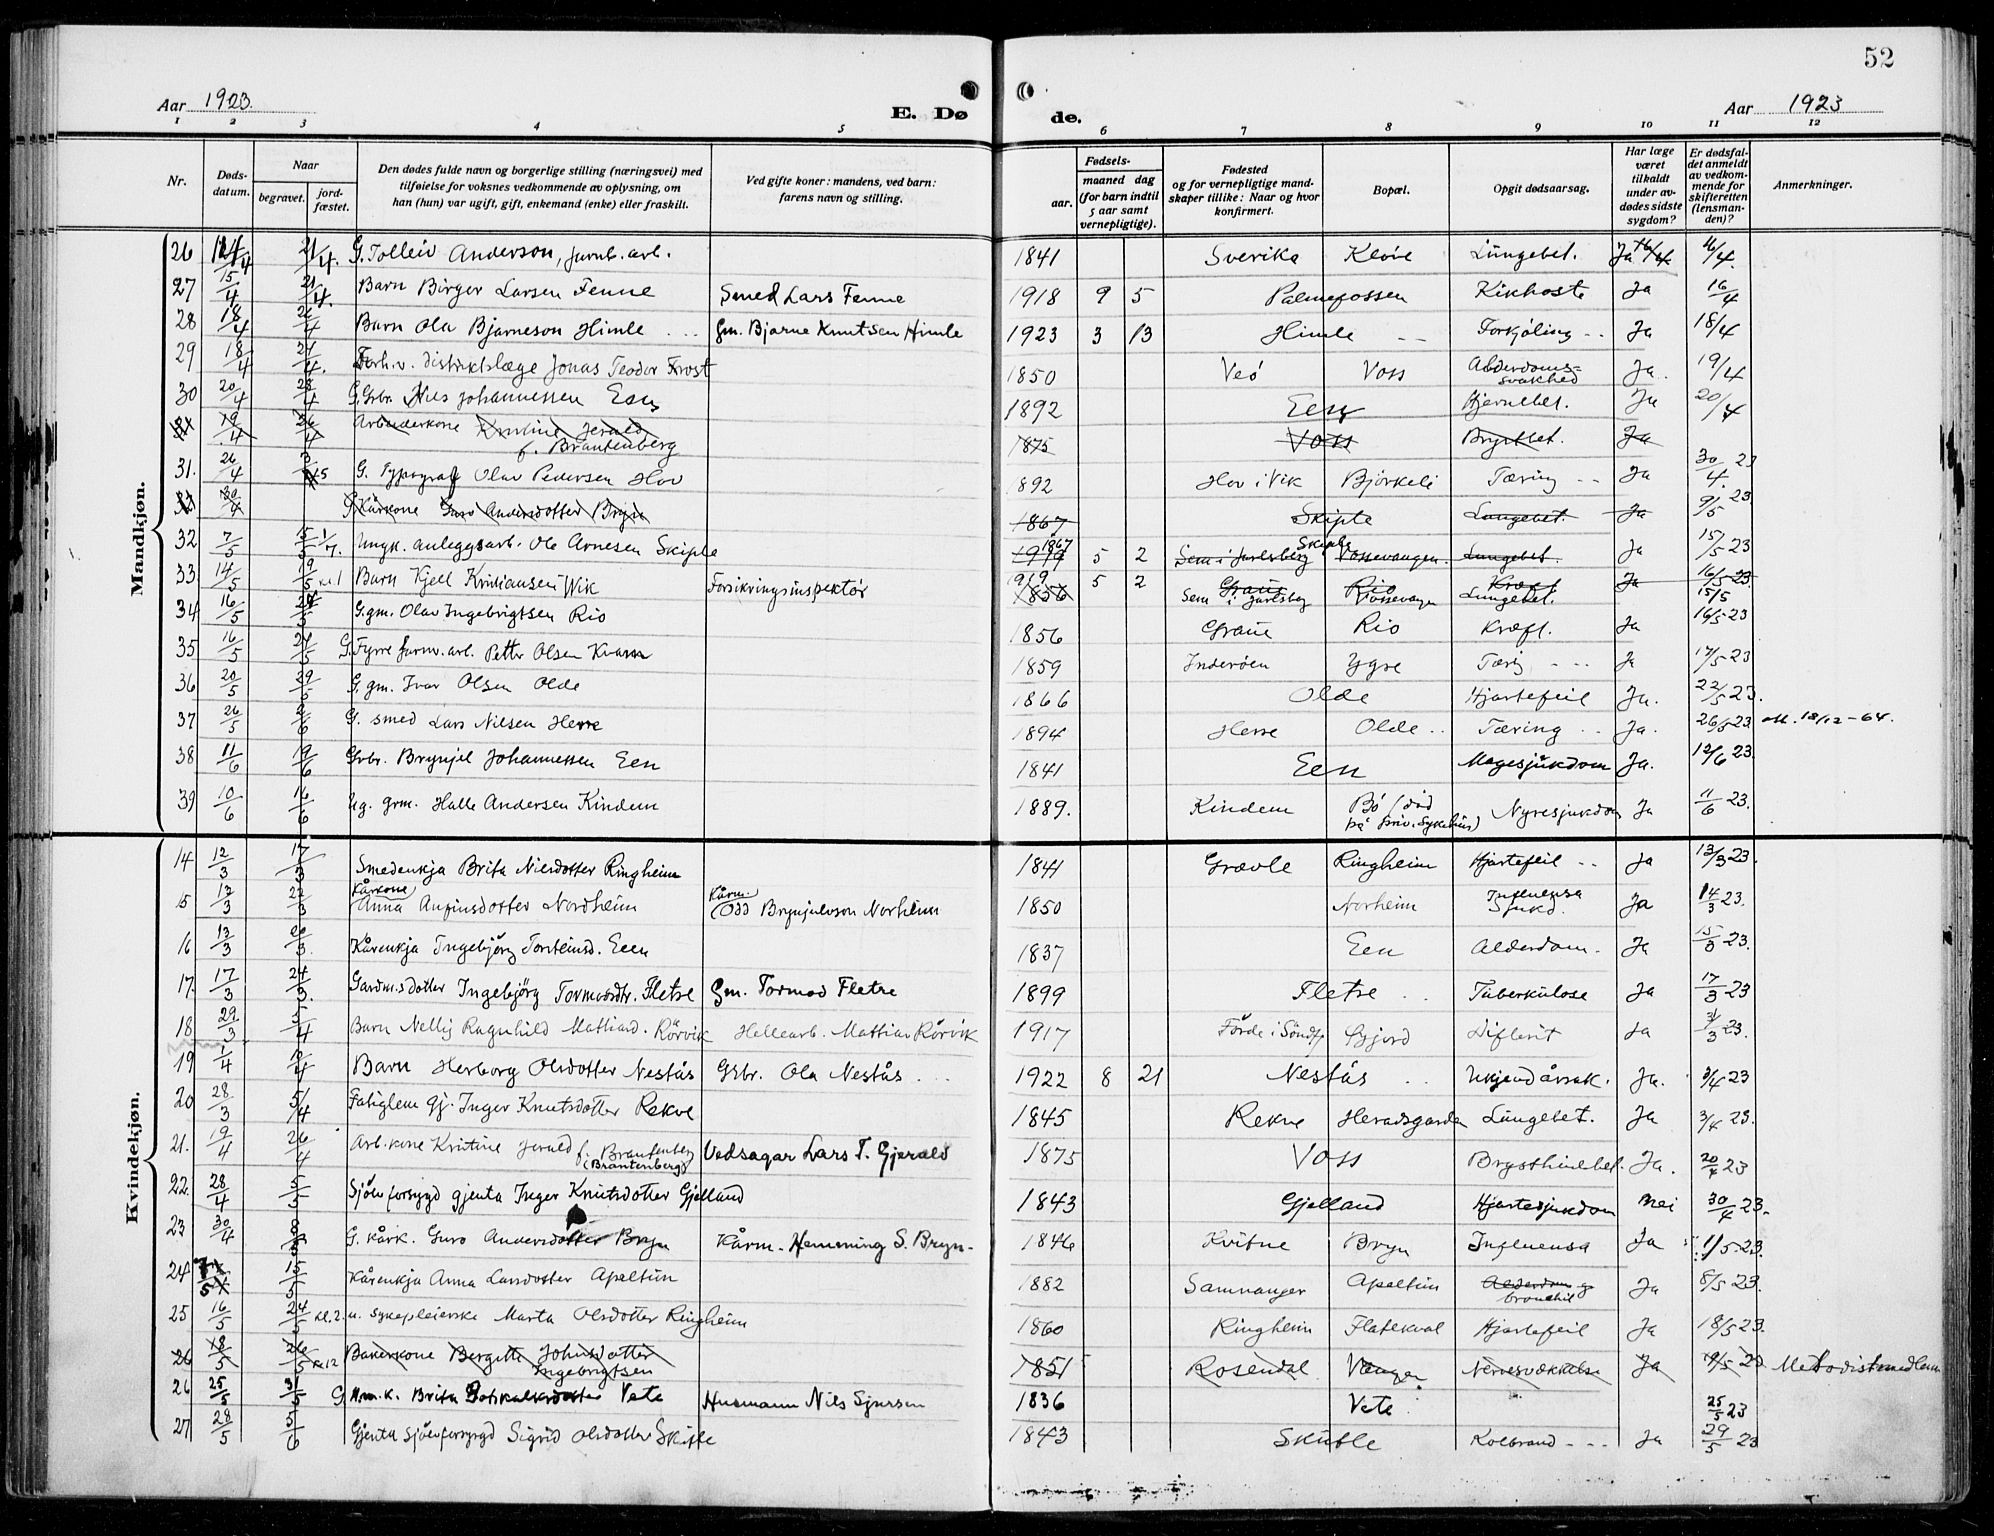 52
Aar 1923.
E. Dø
de.
Aar 1923
1 2 3 4 5 6 7 8 9 10 11 12
Nr.
Døds-
datum.
Naar
begravet.
jord-
fæstet.
Den dødes fulde navn og borgerlige stilling (næringsvei) med
tilføielse for voksnes vedkommende av oplysning, om
han (hun) var ugift, gift, enkemand (enke) eller fraskilt.
Ved gifte koner: mandens, ved barn:
farens navn og stilling.
Fødsels-
aar.
maaned dag
(for barn indtil
5 aar samt
vernepligtige).
Fødested
og for vernepligtige mand-
skaper tillike: Naar og hvor
konfirmert.
Bopæl.
Opgit dødsaarsag.
Har læge
været
tilkaldt
under av-
dødes sidste
sygdom?
Er dødsfal-
det anmeldt
av vedkom-
mende for
skifteretten
(lensman-
den)?
Anmerkninger.
Mandkjøn.
26 14/4 21/4. G. Tolleiv Anderson, jarnb. arb. 1841 Sverike Kløve Lungebet. Ja 16/4
27 15/4 21/4. Barn Birger Larsen Fenne Smed Lars Fenne 1918 9 5 Palmefossen Kikhoste Ja 16/4
28 18/4 Barn Ola Bjarneson Himle Gm. Bjarne Knutsen Himle 1923 3 13 Himle Forkjøling Ja 18/4
29 18/4 21/4. Forh.v. distriktslæge Jonas Teodor Frost 1850 Veö Voss Alderdoms-
svakhed Ja. 19/4
30 20/4 28/4 G. Grbr. Nils Johannessen Een 1892 Een Hjernebet. Ja 20/4
31 19/4 26/4 Arbeiderkone Kristine Jerald
f. Brantenberg 1875 Voss Brysthbet. Ja
31. 26/4 3/5 G. Typograf Olav Pedersen Hov 1892 Hov i Vik Björkeli Tæring Ja 30/4 23
30/4 G. Kårkone Guro Andersdotter Bryn 1867 Skiple Lungebet. Ja 9/5 23
32 7/5 15/5 1/7. Ungk. anleggsarb. Ole Arnesen Skiple 1919 1867 5 2 Sem i Jarlsberg Skiple Vossevangen Lungebet. Ja 15/5 23
33 14/5 19/5 kl. 1 Barn Kjell Kristiansen Wik Forsikringsinspektör 1919 1856 5 2 Graue Sem i Jarlsberg Rio Vossevangen Kræft Lungebet. Ja 16/5 23 15/5
34 16/5 G. gm. Olav Ingebrigtsen Rio 1856 Graue Rio Kræft. Ja 16/5 23
35 16/5 21/5 G. Fyrre jarnv. arb. Petter Olsen Kvam 1859 Inderöen Ygre Tærig Ja 17/5 23
36 20/5 29/5 G. gm. Ivar Olsen Olde 1866 Olde Hjartefeil Ja. 22/5 23.
37 26/5 2/6 G. smed Lars Nilsen Herre 1894 Herre Olde Tæring Ja. 26/5 23 att. 18/12-64.
38 11/6 19/6 Grbr. Brynjel Johannessen Een 1841 Een Magesjukdom Ja. 12/6 23.
39 10/6 16/6 Ug. grm. Halle Andersen Kindem 1889. Kindem Bö (död
på priv. Sykehus) Nyresjukdom Ja 11/6 23.
Kvindekjøn.
14 12/3 17/3 Smedenkja Brita Nilsdotter Ringheim 1841 Græule Ringheim Hjartefeil Ja 13/3 23.
15 13/3 22/3 Kårkone
Anna Anfinsdotter Nordheim Kårm.
Odd Brynjulvson Norheim 1850 Norheim Influensa
Sjukd. Ja 14/3 23.
16 13/3 20/3 Kårenkja Ingebjörg Torsteinsd. Een 1837 Een Alderdom. Ja 15/3 23.
17 17/3 24/3. Gardm.sdotter Ingebjörg Tormodsdtr. Fletre Gm. Tormod Fletre 1899 Fletre Tuberkulose Ja 17/3 23
18 29/3 5/4 Barn Nellij Ragnhild Mattiasd. Rörvik Hellearb. Mattias Rörvik 1917 Förde i Söndfj Gjerd Difterit Ja 31/3 23.
19 1/4 12/4 Barn Herborg Olsdotter Nestås Grbr. Ola Nestås 1922 8 21 Nestås Ukjend årsak. Ja. 3/4 23
20 28/3 5/4 Fatiglem gj. Inger Knutsdotter Rekve 1845 Rekve Heradsgarden Lungebet. Ja 3/4 23.
21. 19/4 26/4 Arb. kone Kristine Jerald f. Brantenberg
(Brantenberg) Vedsagar Lars T. Gjerald 1875 Voss Brysthinebet. Ja. 20/4 23
22. 28/4 5/5 Sjölvforsygd gjenta Inger Knutsdotter Gjelland 1843 Gjelland Hjartesjukdom Nei 30/4 23.
23 30/4 8/5 G. kårk. Guro Andersdotter Bryn Kårm. Hemming S. Bryn. 1846 Kvitne Bryn Influensa Ja 1/5 23.
24 7/5 15/5 Kårenkja Anna Larsdotter Apeltun 1882 Samnanger Apeltun Alderdom og
bronchit Ja 8/5 23.
25 16/5 24/5 kl. 2. u. sykepleierske Marta Olsdotter Ringheim 1860 Ringheim Flatekval Hjartefeil Ja 18/5 23.
26 18/5 26/5 kl 12 Bakerkone Bergitte Johnsdotter
Ingebrigtsen 1851 Rosendal Vangen Nervesvekkelse Ja 19/5 23 Metodistmedlem
26 25/5 31/5 G. Hm. k. Brita Botskalksdotter Vete Husmann Nils Sjursen 1836 Vete 25/5 23
27 28/5 5/6 Gjenta sjölvforsyrgd Sigrid Olsdotter Skiple 1843 Skutle Kolbrand Ja 29/5 23